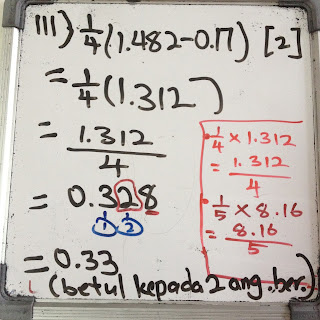 III) 1/4 (1.482-0.17) [2]
= 1/4 (1.312)
= 1.312/4
= 0.328
1 2
= 0.33
(betul kepada 2 ang.ber.)
• 1/4 × 1.312
= 1.312/4
• 1/5 × 8.16
= 8.16/5